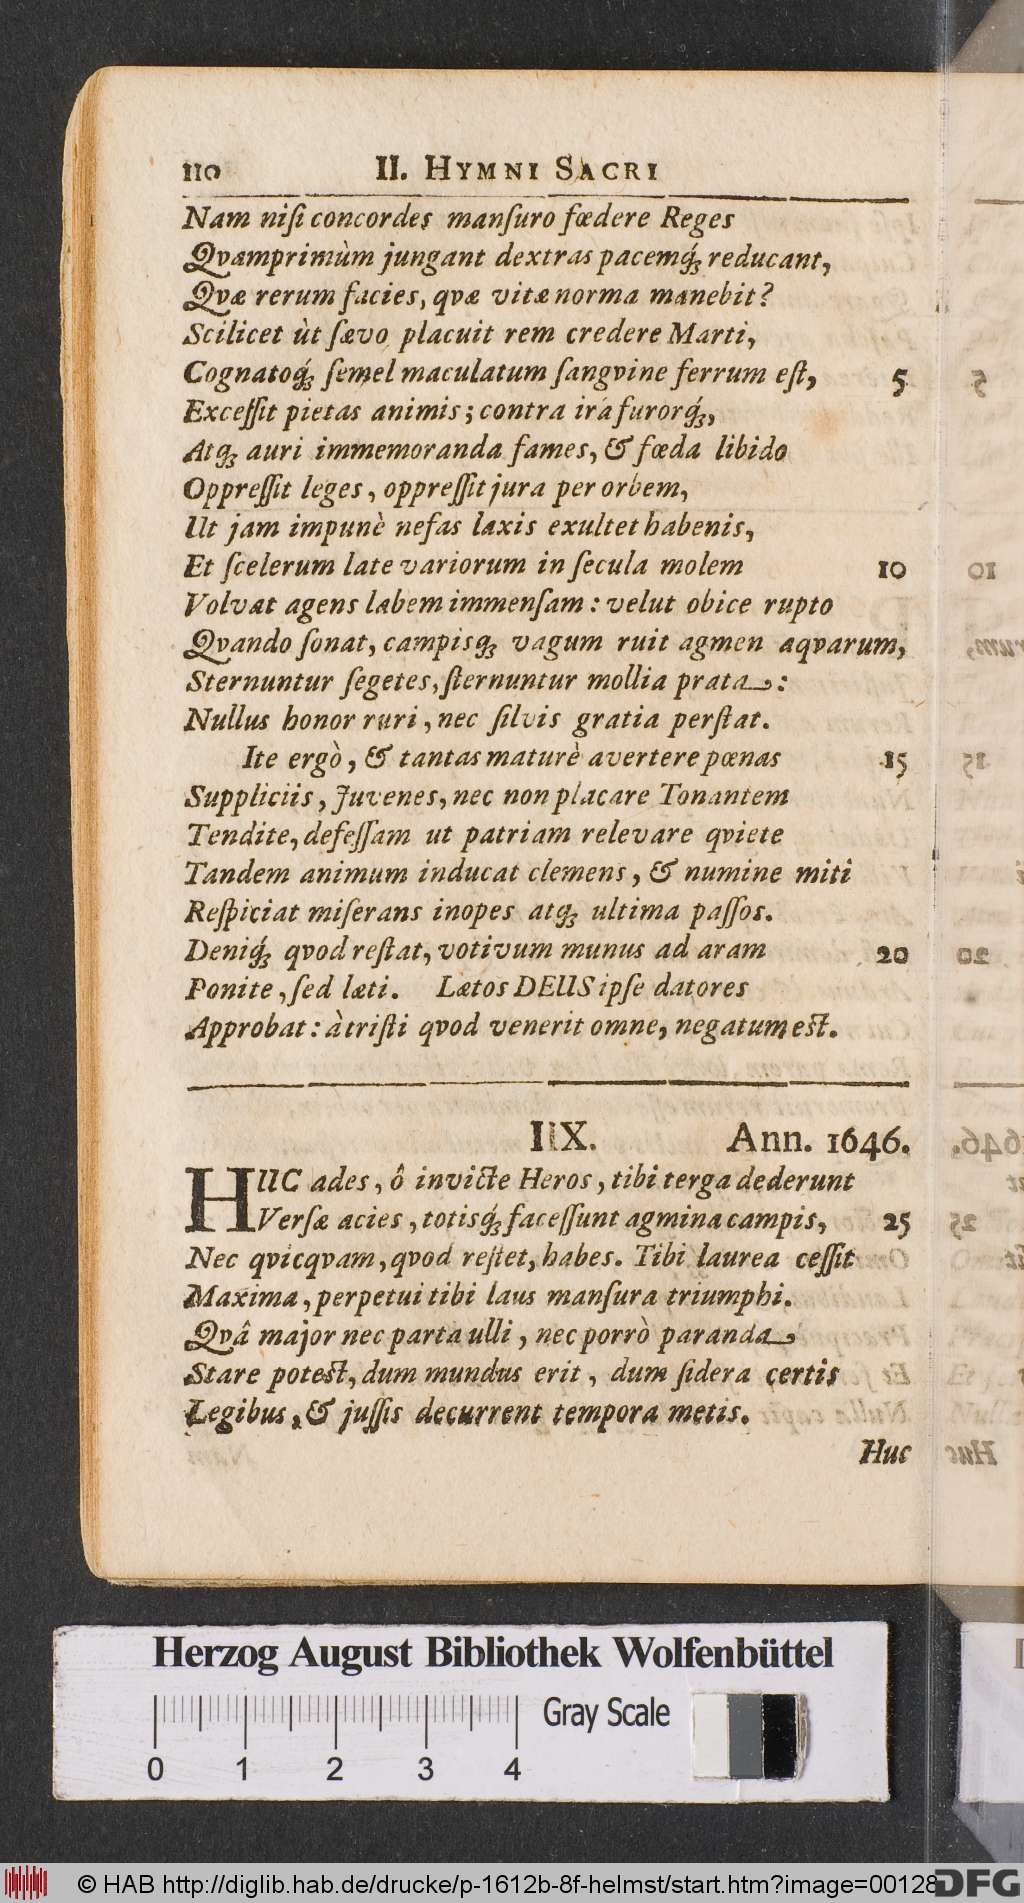 110 II. HYMNI SACRI
Nam niſi concordes manſuro fœdere Reges
Qvamprimùm jungant dextras pacemq́; reducant,
Qvæ rerum facies, qvæ vitæ norma manebit?
Scilicet ùt ſævo placuit rem credere Marti,
Cognatoq́; ſemel maculatum ſangvine ferrum eſt, 5
Exceſſit pietas animis; contra ira furorq́;,
Atq; auri immemoranda fames, & fœda libido
Oppreſſit leges, oppreſſit jura per orbem,
Ut jam impunè nefas laxis exultet habenis,
Et ſcelerum late variorum in ſecula molem 10
Volvat agens labem immenſam: velut obice rupto
Qvando ſonat, campisq; vagum ruit agmen aqvarum,
Sternuntur ſegetes, ſternuntur mollia prata:
Nullus honor ruri, nec ſilvis gratia perſtat.
Ite ergò, & tantas maturè avertere pœnas 15
Suppliciis, Juvenes, nec non placare Tonantem
Tendite, defeſſam ut patriam relevare qviete
Tandem animum inducat clemens, & numine miti
Reſpiciat miſerans inopes atq; ultima paſſos.
Deniq́; qvod reſtat, votivum munus ad aram 20
Ponite, ſed læti. Lætos DEUS ipſe datores
Approbat: à triſti qvod venerit omne, negatum est.
IIX. Ann. 1646.
HUC ades, ô invicte Heros, tibi terga dederunt
Verſæ acies, totisq́; faceſſunt agmina campis, 25
Nec qvicqvam, qvod reſtet, habes. Tibi laurea ceſſit
Maxima, perpetui tibi laus manſura triumphi.
Qvâ major nec parta ulli, nec porrò paranda
Stare potest, dum mundus erit, dum ſidera certis
Legibus, & juſſis decurrent tempora metis.
Huc
Herzog August Bibliothek Wolfenbüttel
Gray Scale
0 1 2 3 4
© HAB http://diglib.hab.de/drucke/p-1612b-8f-helmst/start.htm?image=00128
DFG